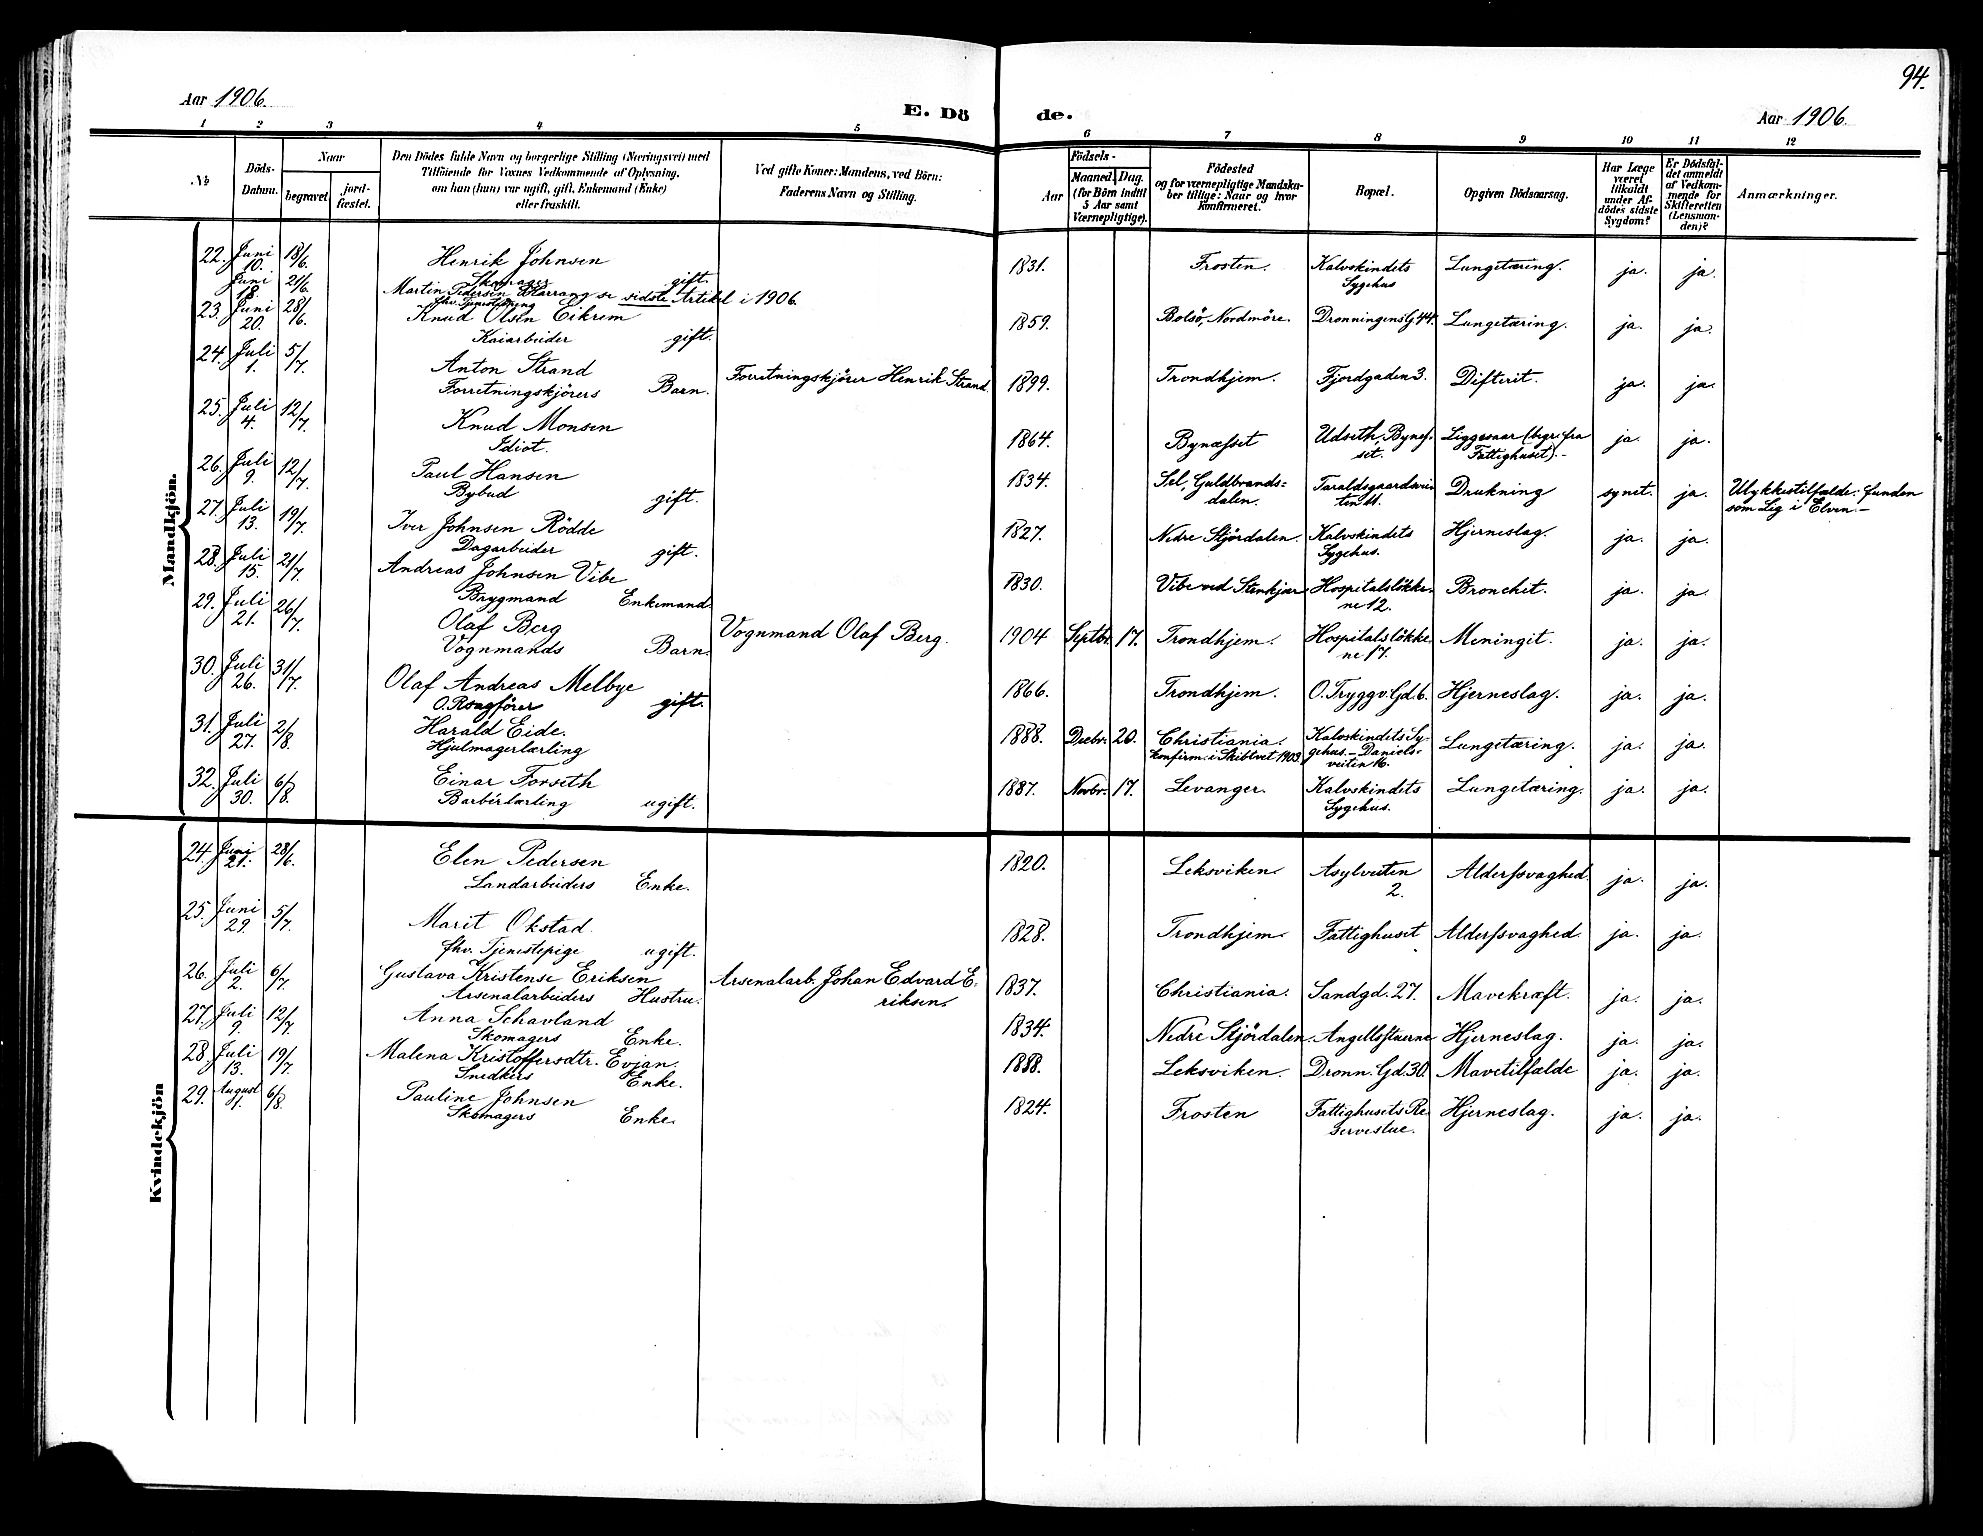 94.
Aar 1906.
E. Dö de.
Aar 1906.
1 2 3 4 5 6 7 8 9 10 11 12
No
Döds-Datum.
Naar
begravet
jord-fæstet.
Den Dödes fulde Navn og borgerlige Stilling (Næringsvei) med
Tilföiende for Voxnes Vedkommende af Oplysning,
om han (hun) var ugift, gift, Enkemand (Enke)
eller fraskilt.
Ved gifte Koner: Mandens, ved Börn:
Faderens Navn og Stilling.
Födsels-
Aar
Maaned. Dag.
(for Börn indtil
5 Aar samt
Værnepligtige).
Födested
og for værnepligtige Mandska-
ber tillige: Naar og hvor
konfirmeret.
Bopæl.
Opgiven Dödsaarsag.
Har Læge
været
tilkaldt
under Af-
dödes sidste
Sygdom?
Er Dödsfal-
det anmeldt
af Vedkom-
mende for
Skifteretten
(Lensman-
den)?
Anmærkninger.
Mandkjön.
22. Juni 10. 18/6. Henrik Johnsen 1831. Frosten. Kalvskindets Lungetæring. ja. ja.
gift. Sygehus
Juni 18. 21/6. Martin Pedersen se sidste Artikel i 1906.
23. Juni 20. 28/6. Knud Olsen Eikrem 1859. Bolsö, Nordmöre. Dronningens G 44. Lungetæring. ja. ja.
Kaiarbeider gift.
24. Juli 1. 5/7. Anton Strand Forretningskjörer Henrik Strand 1899. Trondhjem. Fjordgaden 3. Difterit. ja. ja.
Forretningskjörers Barn.
25. Juli 4. 12/7. Knud Monsen 1864. Bynæsset Udseth, Bynes- Liggesaar (begr. fra ja. ja.
Idiot. set. Fattighuset).-
26. Juli 9. 12/7. Paul Hansen 1834. Sel, Guldbrands= Taraldsgaardsvei- Drukning synet. ja. Ulykkestilfælde: funden
Bybud gift. dalen. ten 11. som Lig i Elven.-
27. Juli 13. 19/7. Iver Johnsen Rödde 1827. Nedre Stjördalen. Kalvskindets Hjerneslag. ja. ja.
Dagarbeider gift. Sygehus.
28. Juli 15. 21/7. Andreas Johnsen Vibe 1830. Vibe ved Stenkjær Hospitalslökke- Bronchit. ja. ja.
Brygmand Enkemand. ne 12.
29. Juli 21. 26/7. Olaf Berg Vognmand Olaf Berg. 1904 Septbr. 17. Trondhjem. Hospitalslökke- Meningit. ja. ja.
Vognmands Barn. ne 17.
30. Juli 26. 31/7. Olaf Andreas Melbye 1866. Trondhjem. O. Tryggv. Gd. 6. Hjerneslag. ja. ja.
gift.
31. Juli 27. 2/8. Harald Eide. 1888. Decbr. 20. Christiania. Kalvskindets Sy- Lungetæring. ja. ja.
Hjulmagerlærling konfirm. i Skibtvet 1903. gehus.- Daniels-
veiten 16.
32. Juli 30. 6/8. Einar Forseth 1887. Novbr. 17. Levanger. Kalvskindets Lungetæring. ja. ja.
Barbérlærling ugift. Sygehus.
Kvindekjön
24. Juni 21. 28/6. Elen Pedersen 1820. Leksviken. Asylveiten Aldersvaghed. ja. ja.
Landarbeiders Enke. 2.
25. Juni 29. 5/7. Marit Okstad. 1828. Trondhjem. Fattighuset Aldersvaghed. ja. ja.
fhv. Tjenestepige ugift.
26. Juli 2. 6/7. Gustava Kristense Eriksen Arsenalarb. Johan Edvard E- 1837. Christiania. Sandgd. 27. Mavekræft. ja. ja.
Arsenalarbeiders Hustru. riksen.
27. Juli 9. 12/7. Anna Schavland 1834. Nedre Stjördalen. Angellsstuerne Hjerneslag. ja. ja.
Skomagers Enke.
28. Juli 13. 19/7. Malena Kristoffersdtr. Evjan. 1888. Leksviken. Dronn. Gd. 30. Mavetilfælde ja. ja.
Snedkers Enke.
29. August 1. 6/8. Pauline Johnsen 1824. Frosten Fattighusets Re- Hjerneslag. ja. ja.
Skomagers Enke. servestue.